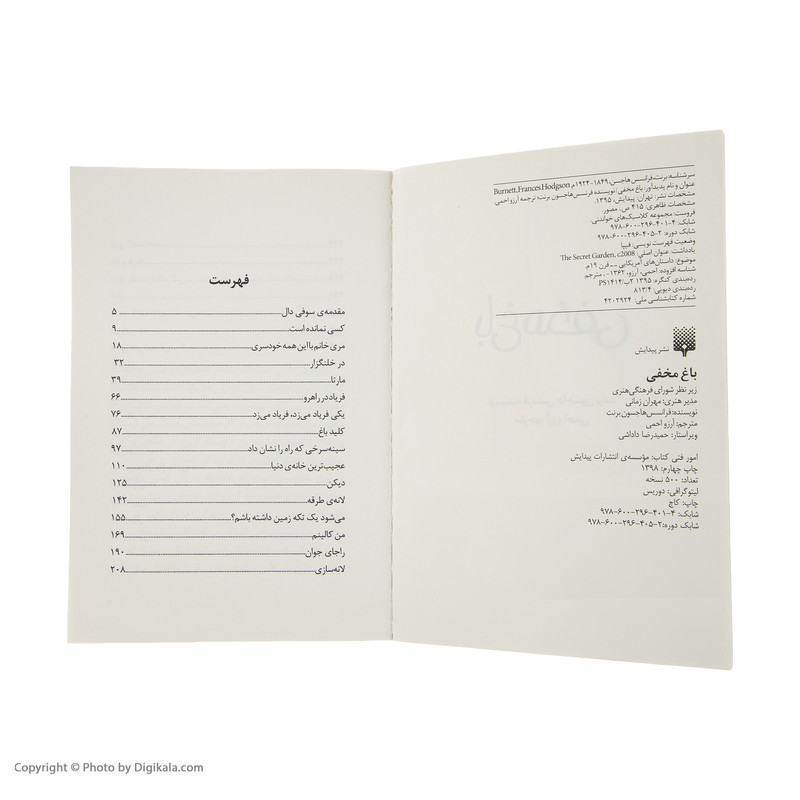 سرشناسه: برنت، فرانسس هاجسن، ۱۸۴۹-۱۹۲۴م. Burnett, Frances Hodgson
عنوان و نام پدیدآور: باغ مخفی/ نویسنده فرنسس هاجسون برنت؛ ترجمه آرزو احمی
مشخصات نشر: تهران: پیدایش، ۱۳۹۵.
مشخصات ظاهری: ۴۱۵ ص. مصور.
فروست: مجموعه کلاسیک‌های خواندنی.
شابک: ۴-۴۰۱-۲۹۶-۶۰۰-۹۷۸
شابک دوره: ۲-۴۰۵-۲۹۶-۶۰۰-۹۷۸
وضعیت فهرست نویسی: فیپا
یادداشت: عنوان اصلی: The Secret Garden, c2008
موضوع: داستان‌های آمریکایی -- قرن ۱۹م.
شناسه افزوده: احمی، آرزو، ۱۳۶۲-، مترجم
رده‌بندی کنگره: ۱۳۹۵ ۲ب/PS۱۴۱۴
رده‌بندی دیویی: ۸۱۳/۴
شماره کتابشناسی ملی: ۴۲۰۲۹۲۴
نشر پیدایش
باغ مخفی
زیر نظر شورای فرهنگی‌هنری
مدیر هنری: مهران زمانی
نویسنده: فرانسس‌هاجسون برنت
مترجم: آرزو احمی
ویراستار: حمیدرضا داداشی
امور فنی کتاب: مؤسسه‌ی انتشارات پیدایش
چاپ چهارم: ۱۳۹۸
تعداد: ۵۰۰ نسخه
لیتوگرافی: دوریس
چاپ: کاج
شابک: ۴-۴۰۱-۲۹۶-۶۰۰-۹۷۸
شابک دوره: ۲-۴۰۵-۲۹۶-۶۰۰-۹۷۸
فهرست
مقدمه‌ی سوفی دال ۵
کسی نمانده است ۹
مری خانم با این همه خودسری ۱۸
در خلنگزار ۳۲
مارتا ۳۹
فریاد در راهرو ۶۶
یکی فریاد می‌زد، فریاد می‌زد ۷۶
کلید باغ ۸۷
سینه‌سرخی که راه را نشان داد ۹۷
عجیب‌ترین خانه‌ی دنیا ۱۱۰
دیکن ۱۲۵
لانه‌ی طرقه ۱۴۲
می‌شود یک تکه زمین داشته باشم؟ ۱۵۵
من کالینم ۱۶۹
راجای جوان ۱۹۰
لانه‌سازی ۲۰۸
Copyright © Photo by Digikala.com